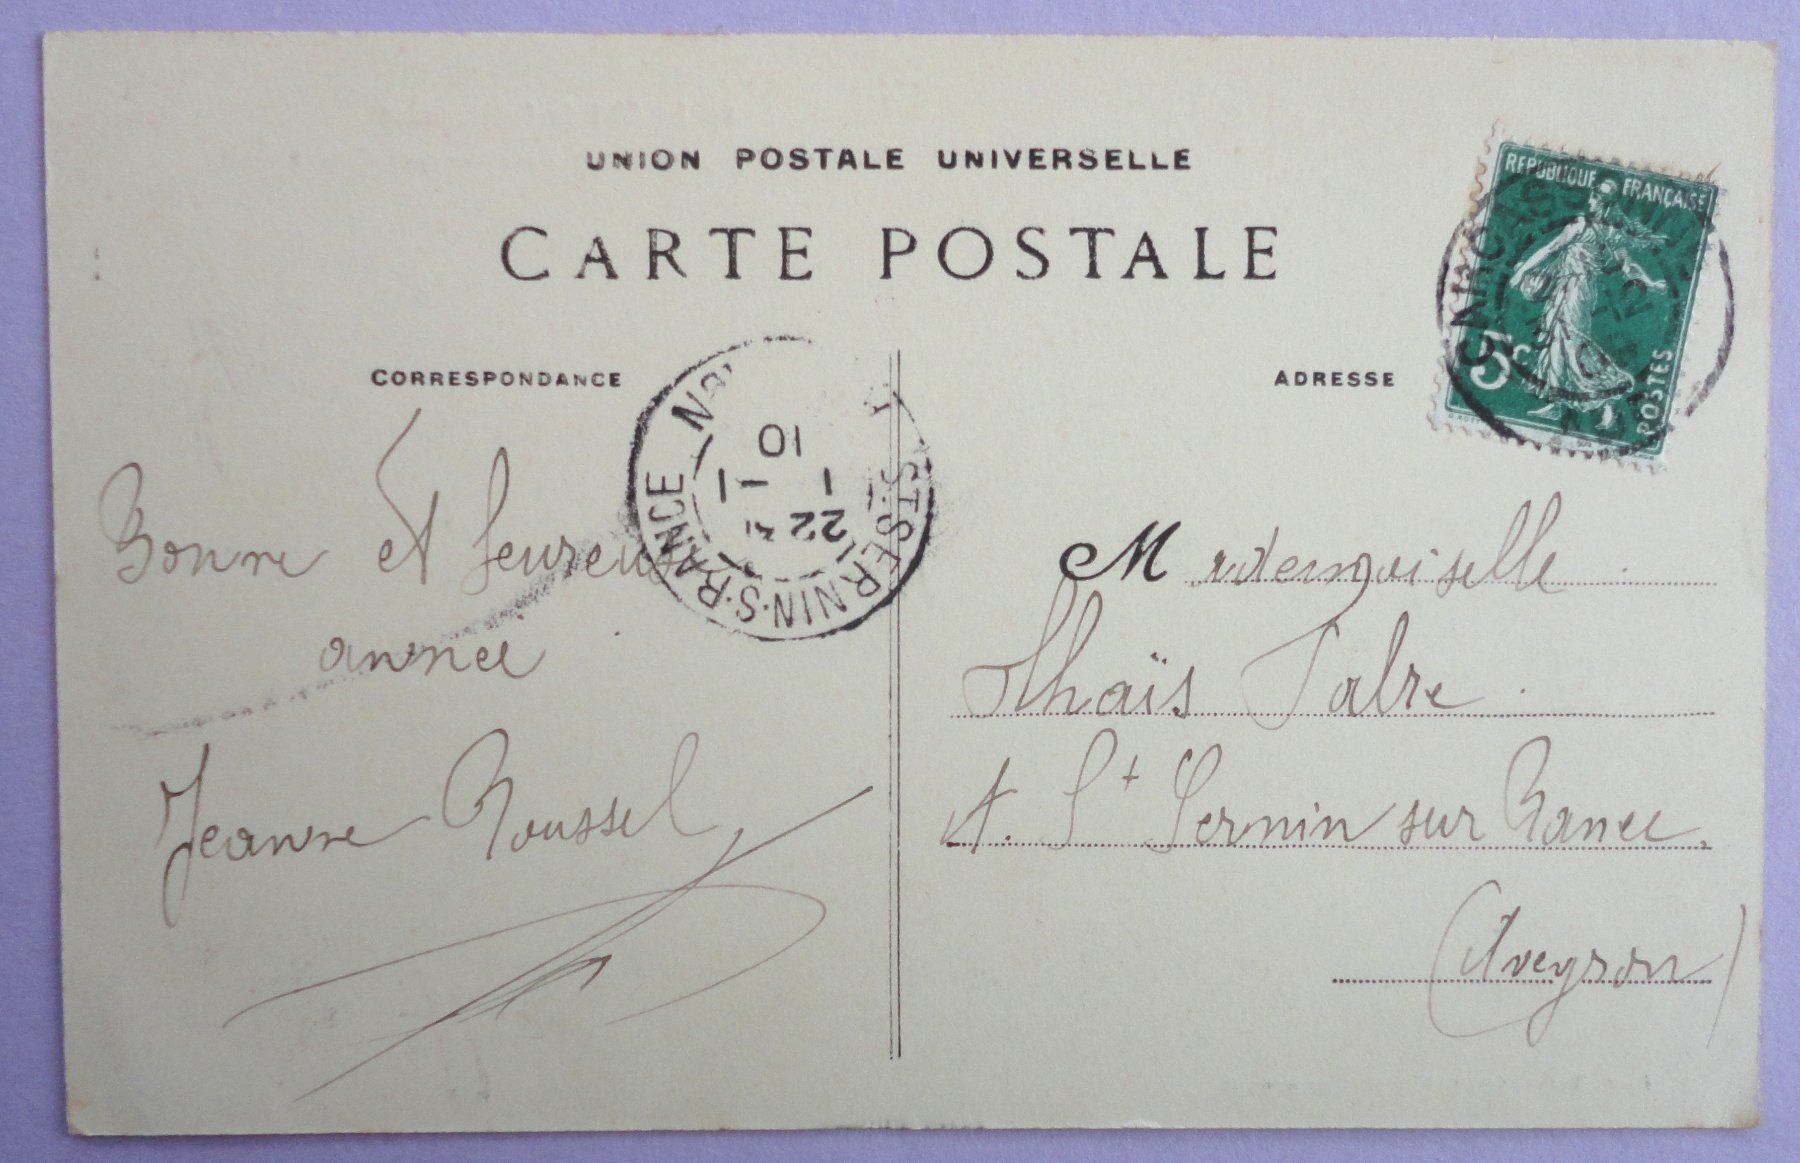 UNION POSTALE UNIVERSELLE
CARTE POSTALE
CORRESPONDANCE
ADRESSE
REPUBLIQUE FRANÇAISE
5c
POSTES
ST SERNIN-S-RANCE
22
1
10
Bonne et heureuse
année
Jeanne Roussel
Mademoiselle
Thaïs Fabre
A. St Sernin sur Rance.
(Aveyron)